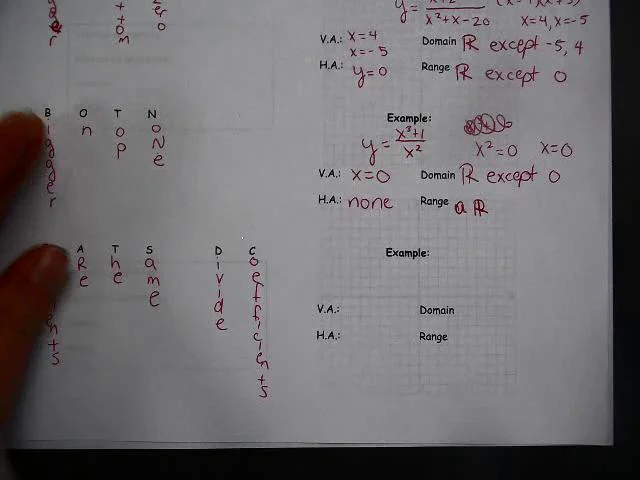 y =
x²+x-20 x=4, x=-5
V.A.: x=4
x=-5
Domain ℝ except -5, 4
H.A.: y=0
Range ℝ except 0
Bigger On Top NoNe
Example:
y = x³+1 / x²
x²=0 x=0
V.A.: x=0
Domain ℝ except 0
H.A.: none
Range a ℝ
ARe The Same Divide Coefficients
Example:
V.A.:
Domain
H.A.:
Range